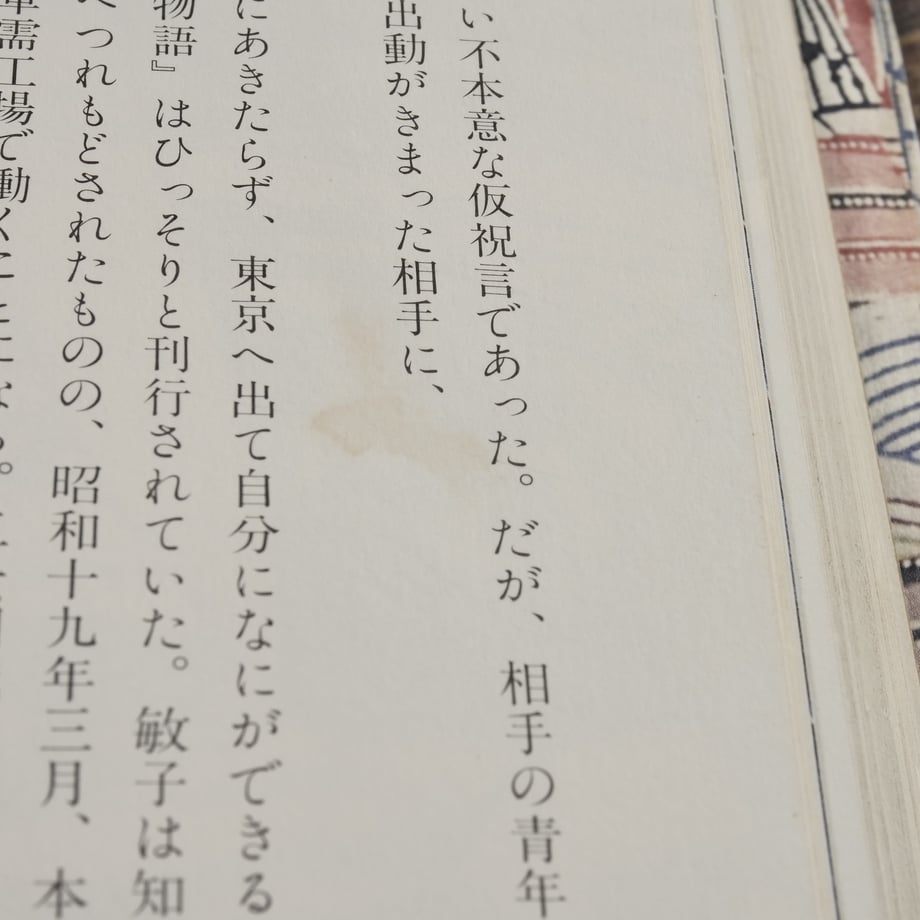 い不本意な仮祝言であった。だが、相手の青年
出動がきまった相手に、
にあきたらず、東京へ出て自分になにができる
物語』はひっそりと刊行されていた。敏子は知
へつれもどされたものの、昭和十九年三月、本
軍需工場で働くことになる。